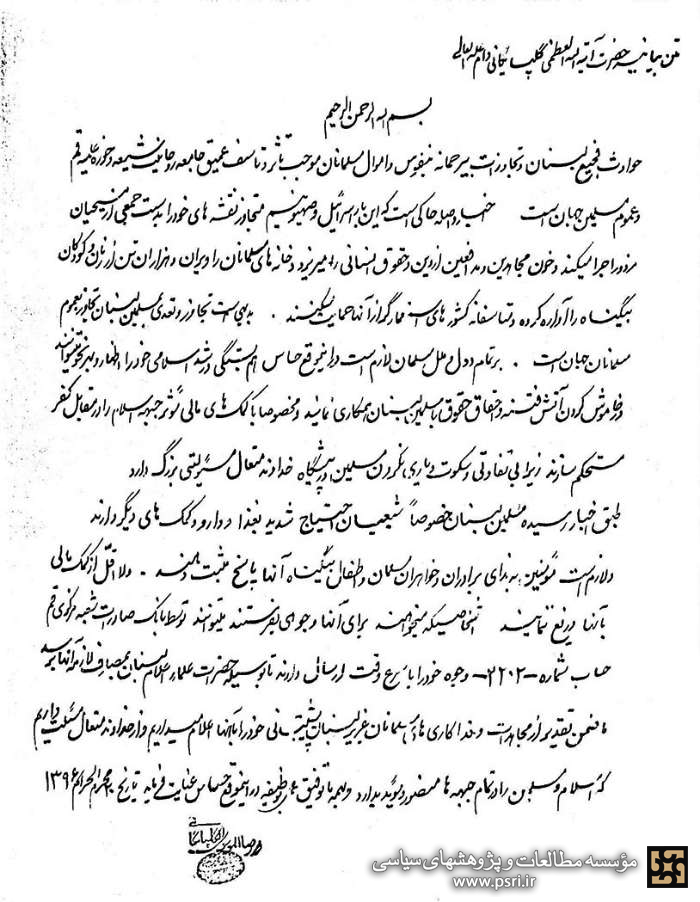 متن بیانیه حضرت آیة الله العظمی گلپایگانی دام ظله العالی
بسم الله الرحمن الرحیم
حوادث فجیع لبنان و تجاوزات بیرحمانه بنفوس و اموال مسلمانان موجب تأثر و تأسف عمیق جامعه روحانیت شیعه و حوزه علمیه قم
و عموم مسلمین جهان است اخبار واصله حاکی است که این بار اسرائیل و صهیونیسم متجاوز نقشه های خود را بدست جمعی از مسیحیان
مزدور اجرا میکند و خون مجاهدین و مدافعین از دین و حقوق انسانی را میریزد و خانه های مسلمانان را ویران و هزاران تن از زنان و کودکان
بیگناه را آواره کرده و متأسفانه کشورهای استعمارگر از آنها حمایت میکنند . بدیهی است تجاوز و تعدی بمسلمین لبنان تجاوز بعموم
مسلمانان جهان است . بر تمام دول و ملل مسلمان لازم است در این موقع حساس همبستگی و رشد اسلامی خود را اظهار و بهر نحو میتوانند
در خاموش کردن آتش فتنه و احقاق حقوق با مسلمین لبنان همکاری نمایند و مخصوصا با کمک های مالی مؤثر جبهه اسلام را در مقابل کفر
مستحکم سازند زیرا بی تفاوتی و سکوت و یاری نکردن مسلمین در پیشگاه خداوند متعال مسئولیتی بزرگ دارد
طبق اخبار رسیده مسلمین لبنان خصوصاً شیعیان احتیاج شدید بغذا و دارو و کمک های دیگر دارند
و لازم است مؤمنین به ندای برادران و خواهران مسلمان و اطفال بیگناه آنها پاسخ مثبت دهند . و لا اقل از کمک مالی
بآنها دریغ ننمایند اشخاصیکه میخواهند برای آنها وجوهی بفرستند میتوانند توسط بانک صادرات شعبه مرکزی قم
حساب شماره -۲۲۰۲- وجوه خود را باسرع وقت ارسال دارند تا بوسیله حضرات علماء اعلام لبنان بمصارف لازمه آنها برسد
ما ضمن تقدیر از مجاهدات و فداکاری های مسلمانان عزیز لبنان پشتیبانی خود را بآنها اعلام میداریم و از خداوند متعال مسئلت داریم
که اسلام و مسلمین را در تمام جبهه ها منصور و مؤید بدارد و بهمه ما توفیق عمل بوظیفه در این موقع حساس عنایت فرماید تاریخ محرم الحرام ۱۳۹۶
محمد رضا الموسوی الگلپایگانی
مؤسسه مطالعات و پژوهشهای سیاسی
www.psri.ir